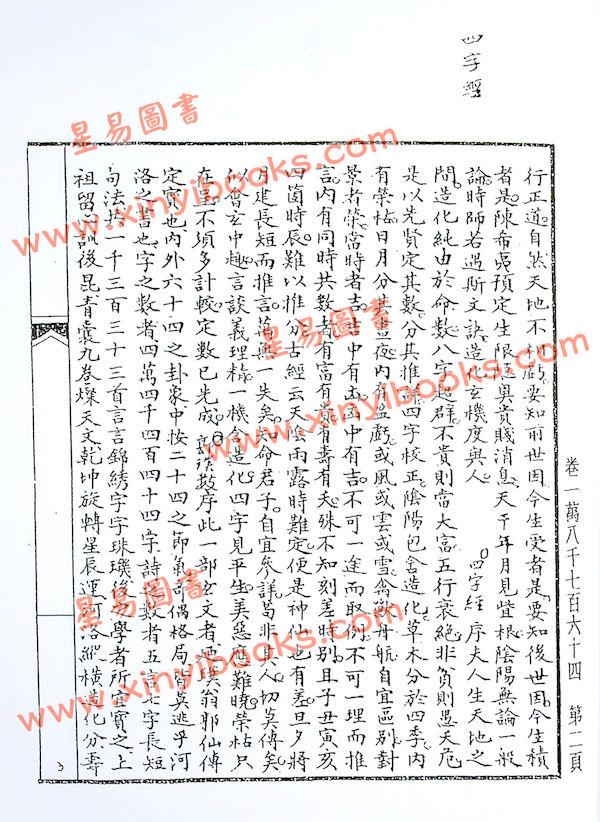 四字經
卷二萬八千七百六十四　第二頁
行正道自然天地不虧要知前世因今生受者是要知後世因今生積
者是陳希夷預定生限與貴賤消息天千年月見豈根陰陽無論一般
論時師若遇斯文訣造化玄機度與人　四字經　序夫人生天地之
間造化純由於命數八字超群不貴則當大富五行衰絕非貧則是夭危
是以先賢定其數分其推詳四字校正陰陽包含造化草木分於四季內
有榮枯日月分其晝夜內有盈虧或風或雲或雪禽獸舟航自宜區別對
景者榮當時者吉吉中有凶凶中有吉不可一途而取例不可一理而推
言內有同時共數者有富有貴有壽有夭殊不知刻差時別且子丑寅亥
四箇時辰難以推分古經云天陰雨露時難定便是神仙也有差旦夕將
月建長短而推言萬無一失矣知命君子自宜參詳苟非其人切莫傳矣
似會玄中趣言談義理精一機含造化四字見平生美惡應難曉榮枯只
在呈不須多計較定數已先成　數序此一部玄文者邵仙傳
定實也內外六十四之卦象中按二十四之節氣奇偶格局皆莫逃乎河
洛之書也字之數者四萬四千四百四十四字詩之數者五言七字長短
句法共一千三百三十三首言言錦綉字字珠璣後之學者所宜寶之上
祖留訓後昆青囊九卷燦天文乾坤旋轉星辰運河洛縱橫造化分壽
3
星易圖書
www.xinyibooks.com
星易圖書
www.xinyibooks.com
星易圖書
www.xinyibooks.com